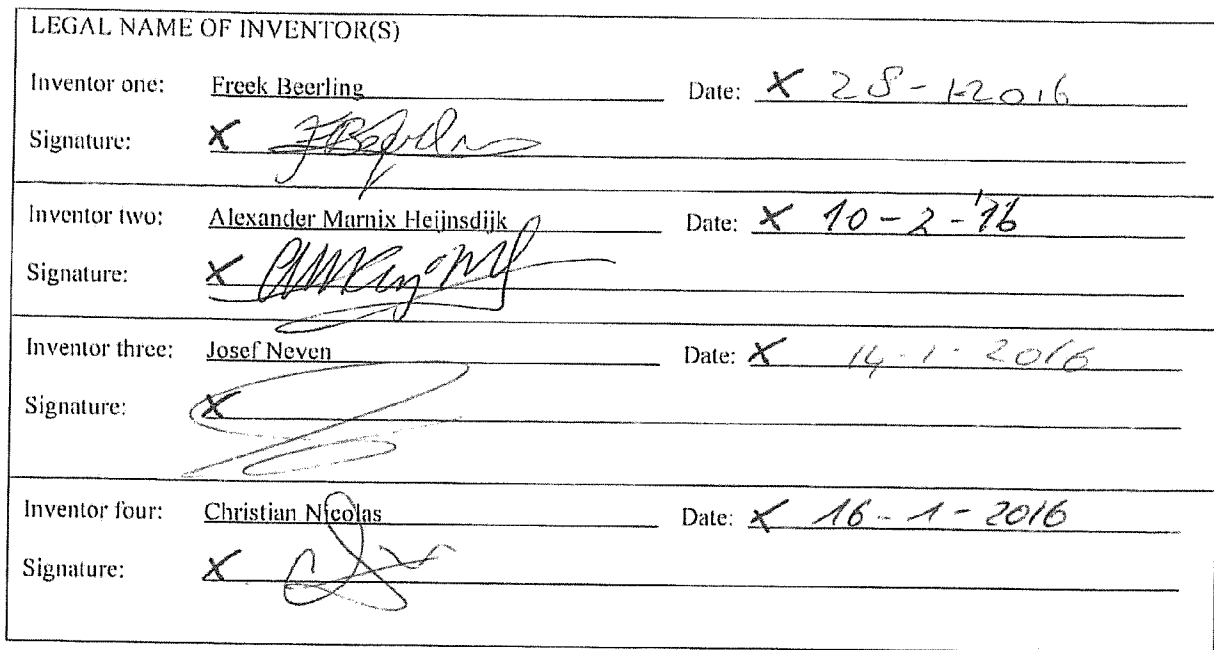 LEGAL NAME OF INVENTOR(S)
Inventor one: Freek Beerling Date: X 28-1-2016
Signature: X
Inventor two: Alexander Marnix Heijnsdijk Date: X 10-2-'16
Signature: X
Inventor three: Josef Neven Date: X 14-1-2016
Signature: X
Inventor four: Christian Nicolas Date: X 16-1-2016
Signature: X